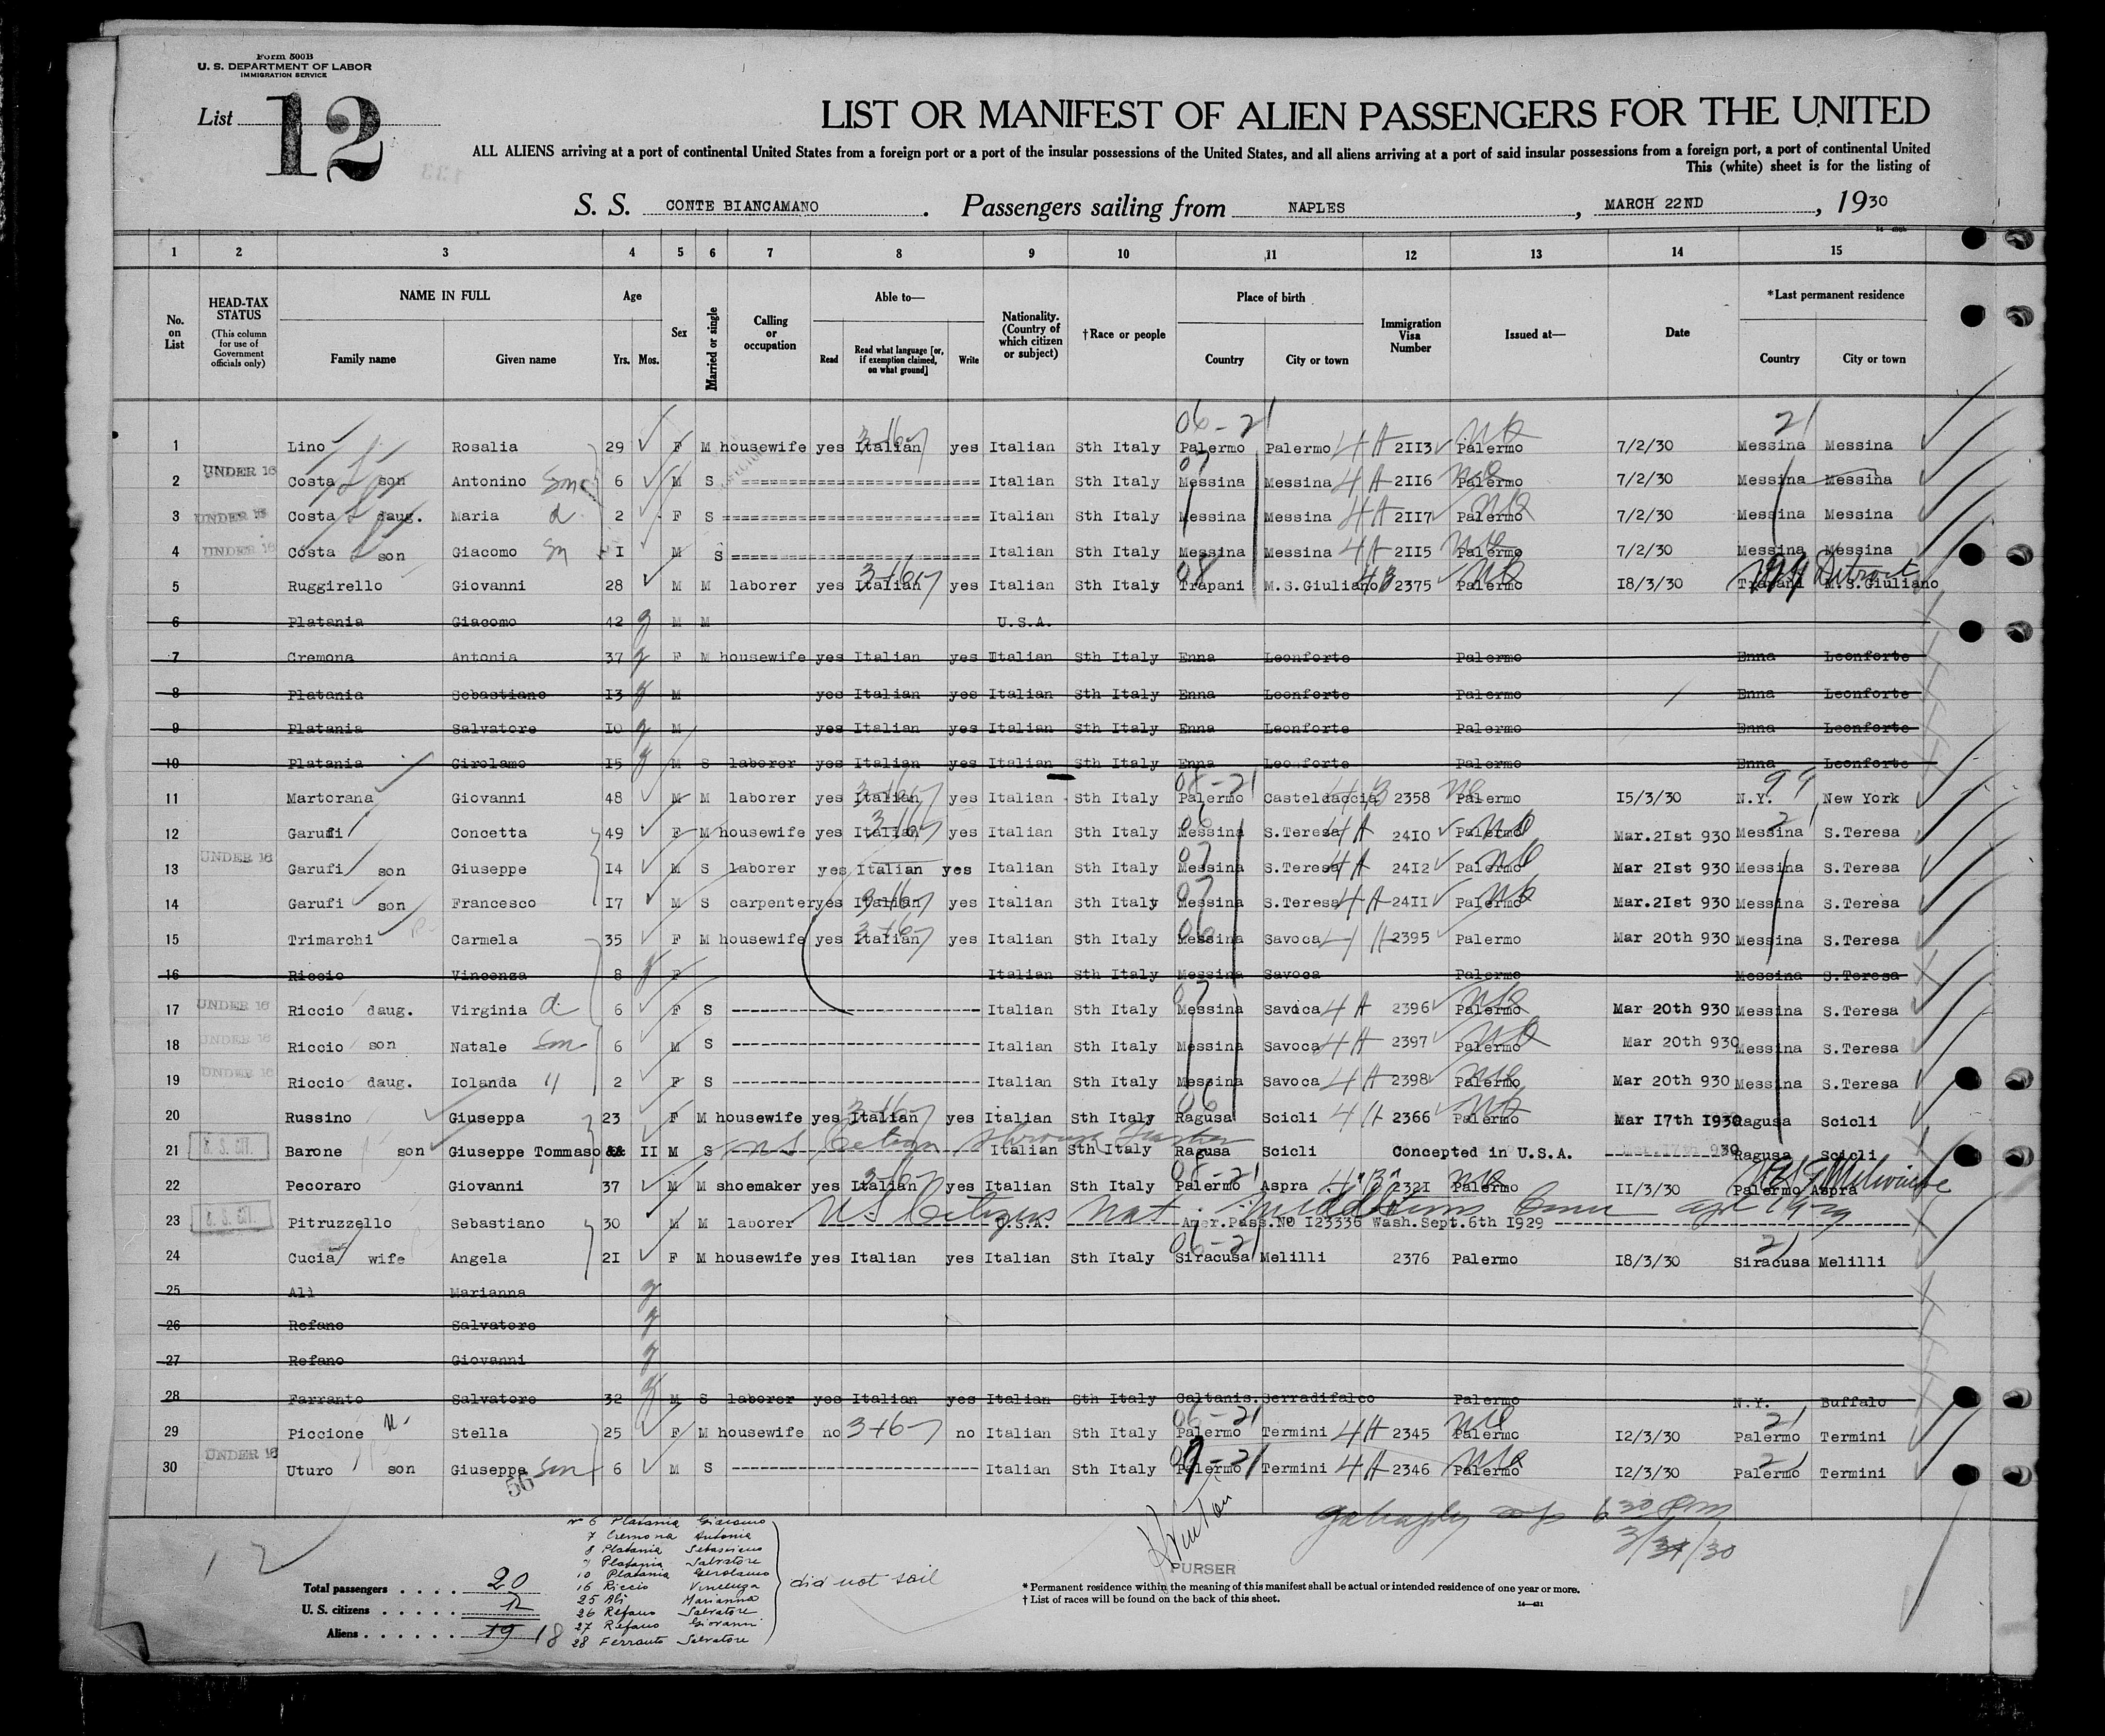 Form 500B
U. S. DEPARTMENT OF LABOR
IMMIGRATION SERVICE
List 12
LIST OR MANIFEST OF ALIEN PASSENGERS FOR THE UNITED
ALL ALIENS arriving at a port of continental United States from a foreign port or a port of the insular possessions of the United States, and all aliens arriving at a port of said insular possessions from a foreign port, a port of continental United
This (white) sheet is for the listing of
S. S. CONTE BIANCAMANO . Passengers sailing from NAPLES , MARCH 22ND , 1930
1 2 3 4 5 6 7 8 9 10 11 12 13 14 15
No. on List HEAD-TAX STATUS (This column for use of Government officials only) NAME IN FULL Family name Given name Age Yrs. Mos. Sex Married or single Calling or occupation Able to— Read Read what language [or, if exemption claimed, on what ground] Write Nationality. (Country of which citizen or subject) †Race or people Place of birth Country City or town Immigration Visa Number Issued at— Date *Last permanent residence Country City or town
06-21 21
1 Lino Rosalia 29 F M housewife yes Italian yes Italian Sth Italy Palermo Palermo 4A 2II3 Palermo 7/2/30 Messina Messina
2 UNDER 16 Costa son Antonino Son 6 M S Italian Sth Italy Messina Messina 4A 2II6 Palermo 7/2/30 Messina Messina
3 UNDER 16 Costa daug. Maria d 2 F S Italian Sth Italy Messina Messina 4A 2II7 Palermo 7/2/30 Messina Messina
4 UNDER 16 Costa son Giacomo Sn I M S Italian Sth Italy Messina Messina 4A 2II5 Palermo 7/2/30 Messina Messina
5 Ruggirello Giovanni 28 M M laborer yes Italian yes Italian Sth Italy Trapani M.S.Giuliano 4B 2375 Palermo I8/3/30 Trapani M.S.Giuliano 99 Detroit
6 Platania Giacomo 42 M M U.S.A.
7 Cremona Antonia 37 F M housewife yes Italian yes Italian Sth Italy Enna Leonforte Palermo Enna Leonforte
8 Platania Sebastiano I3 M yes Italian yes Italian Sth Italy Enna Leonforte Palermo Enna Leonforte
9 Platania Salvatore I0 M yes Italian yes Italian Sth Italy Enna Leonforte Palermo Enna Leonforte
10 Platania Girolamo I5 M S laborer yes Italian yes Italian Sth Italy Enna Leonforte Palermo Enna Leonforte
08-21 99
11 Martorana Giovanni 48 M M laborer yes Italian yes Italian Sth Italy Palermo Casteldaccia 4B 2358 Palermo I5/3/30 N.Y. New York
12 Garufi Concetta 49 F M housewife yes Italian yes Italian Sth Italy Messina S.Teresa 4A 24I0 Palermo Mar.2Ist 930 Messina S.Teresa
13 UNDER 16 Garufi son Giuseppe I4 M S laborer yes Italian yes Italian Sth Italy Messina S.Teresa 4A 24I2 Palermo Mar 2Ist 930 Messina S.Teresa
14 Garufi son Francesco I7 M S carpenter yes Italian yes Italian Sth Italy Messina S.Teresa 4A 24II Palermo Mar.2Ist 930 Messina S.Teresa
15 Trimarchi Carmela 35 F M housewife yes Italian yes Italian Sth Italy Messina Savoca 4A 2395 Palermo Mar 20th 930 Messina S.Teresa
16 Riccio Vincenza 8 F Italian Sth Italy Messina Savoca Palermo Messina S.Teresa
17 UNDER 16 Riccio daug. Virginia d 6 F S Italian Sth Italy Messina Savoca 4A 2396 Palermo Mar 20th 930 Messina S.Teresa
18 UNDER 16 Riccio son Natale Son 6 M S Italian Sth Italy Messina Savoca 4A 2397 Palermo Mar 20th 930 Messina S.Teresa
19 UNDER 16 Riccio daug. Iolanda 2 F S Italian Sth Italy Messina Savoca 4A 2398 Palermo Mar 20th 930 Messina S.Teresa
20 Russino Giuseppa 23 F M housewife yes Italian yes Italian Sth Italy Ragusa Scicli 4A 2366 Palermo Mar I7th I930 Ragusa Scicli
US Citizen through Father
21 U. S. CIT. Barone son Giuseppe Tommaso II M S Italian Sth Italy Ragusa Scicli Concepted in U.S.A. Ragusa Scicli
22 Pecoraro Giovanni 37 M M shoemaker yes Italian yes Italian Sth Italy Palermo Aspra 4B 232I Palermo II/3/30 Palermo Aspra Milwaukee
US Citizen Nat. Middletown Conn
23 U. S. CIT. Pitruzzello Sebastiano 30 M M laborer U.S.A. Amer.Pass.No I23336 Wash.Sept.6th I929
24 Cucia wife Angela 2I F M housewife yes Italian yes Italian Sth Italy Siracusa Melilli 2376 Palermo I8/3/30 Siracusa Melilli
25 Alì Marianna
26 Refano Salvatore
27 Refano Giovanni
28 Farranto Salvatore 32 M S laborer yes Italian yes Italian Sth Italy Caltanis. Serradifalco Palermo N.Y. Buffalo
06-21 21
29 Piccione Stella 25 F M housewife no no Italian Sth Italy Palermo Termini 4A 2345 Palermo I2/3/30 Palermo Termini
30 UNDER 16 Uturo son Giuseppe Son 6 M S Italian Sth Italy Palermo Termini 4A 2346 Palermo I2/3/30 Palermo Termini
56
6 30 PM
3/31/30
12
No 6 Platania Giacomo
7 Cremona Antonia
8 Platania Sebastiano
9 Platania Salvatore
10 Platania Girolamo
16 Riccio Vincenza
25 Ali Marianna
26 Refano Salvatore
27 Refano Giovanni
28 Ferranto Salvatore
did not sail
PURSER
Total passengers . . . . 20
U. S. citizens . . . . .
Aliens . . . . . . 19 18
* Permanent residence within the meaning of this manifest shall be actual or intended residence of one year or more.
† List of races will be found on the back of this sheet.